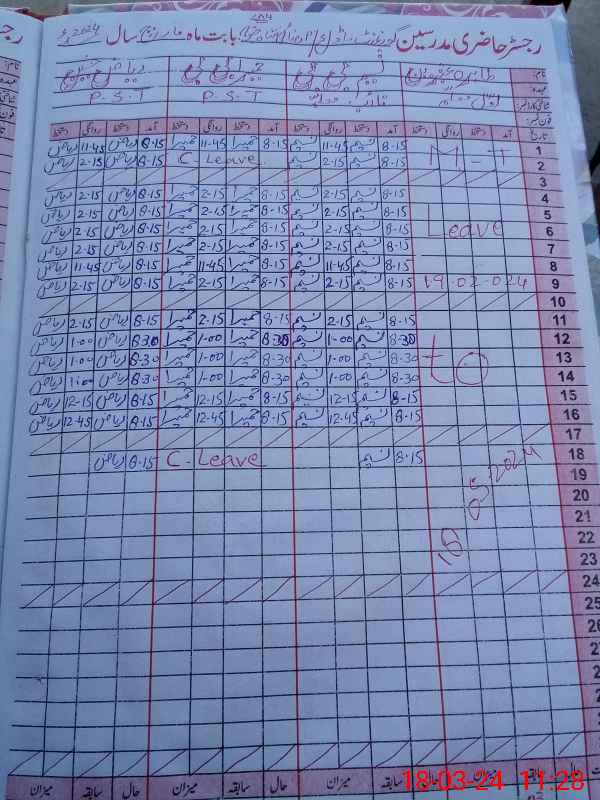 رجسٹر حاضری مدرسین گورنمنٹ بابت ماہ مارچ سال 2024ء
نام:
عہدہ P.S.T P.S.T
شناختی کارڈ نمبر
فون نمبر:
تاریخ آمد دستخط روانگی دستخط آمد دستخط روانگی دستخط آمد دستخط روانگی دستخط آمد دستخط روانگی دستخط
1 8-15 نسیم 11-45 نسیم 8-15 حمیرا 11-45 حمیرا 8-15 ریاض 11-45 ریاض
2 8-15 نسیم 2-15 نسیم C. Leave 8-15 ریاض 2-15 ریاض
3
4 8-15 نسیم 2-15 نسیم 8-15 حمیرا 2-15 حمیرا 8-15 ریاض 2-15 ریاض
5 8-15 نسیم 2-15 نسیم 8-15 حمیرا 2-15 حمیرا 8-15 ریاض 2-15 ریاض
6 Leave 8-15 نسیم 2-15 نسیم 8-15 حمیرا 2-15 حمیرا 8-15 ریاض 2-15 ریاض
7 8-15 نسیم 2-15 نسیم 8-15 حمیرا 2-15 حمیرا 8-15 ریاض 2-15 ریاض
8 8-15 نسیم 11-45 نسیم 8-15 حمیرا 11-45 حمیرا 8-15 ریاض 11-45 ریاض
9 19-02-024 8-15 نسیم 2-15 نسیم 8-15 حمیرا 2-15 حمیرا 8-15 ریاض 2-15 ریاض
10
11 8-15 نسیم 2-15 نسیم 8-15 حمیرا 2-15 حمیرا 8-15 ریاض 2-15 ریاض
12 8-30 نسیم 1-00 نسیم 8-30 حمیرا 1-00 حمیرا 8-30 ریاض 1-00 ریاض
13 to 8-30 نسیم 1-00 نسیم 8-30 حمیرا 1-00 حمیرا 8-30 ریاض 1-00 ریاض
14 8-30 نسیم 1-00 نسیم 8-30 حمیرا 1-00 حمیرا 8-30 ریاض 1-00 ریاض
15 8-15 نسیم 12-15 نسیم 8-15 حمیرا 12-15 حمیرا 8-15 ریاض 12-15 ریاض
16 8-15 نسیم 12-45 نسیم 8-15 حمیرا 12-45 حمیرا 8-15 ریاض 12-45 ریاض
17
18 8-15 نسیم C. Leave 8-15 ریاض
19
20
21
22
23
24
25
حال سابقہ میزان حال سابقہ میزان حال سابقہ میزان
18-03-24 11:28